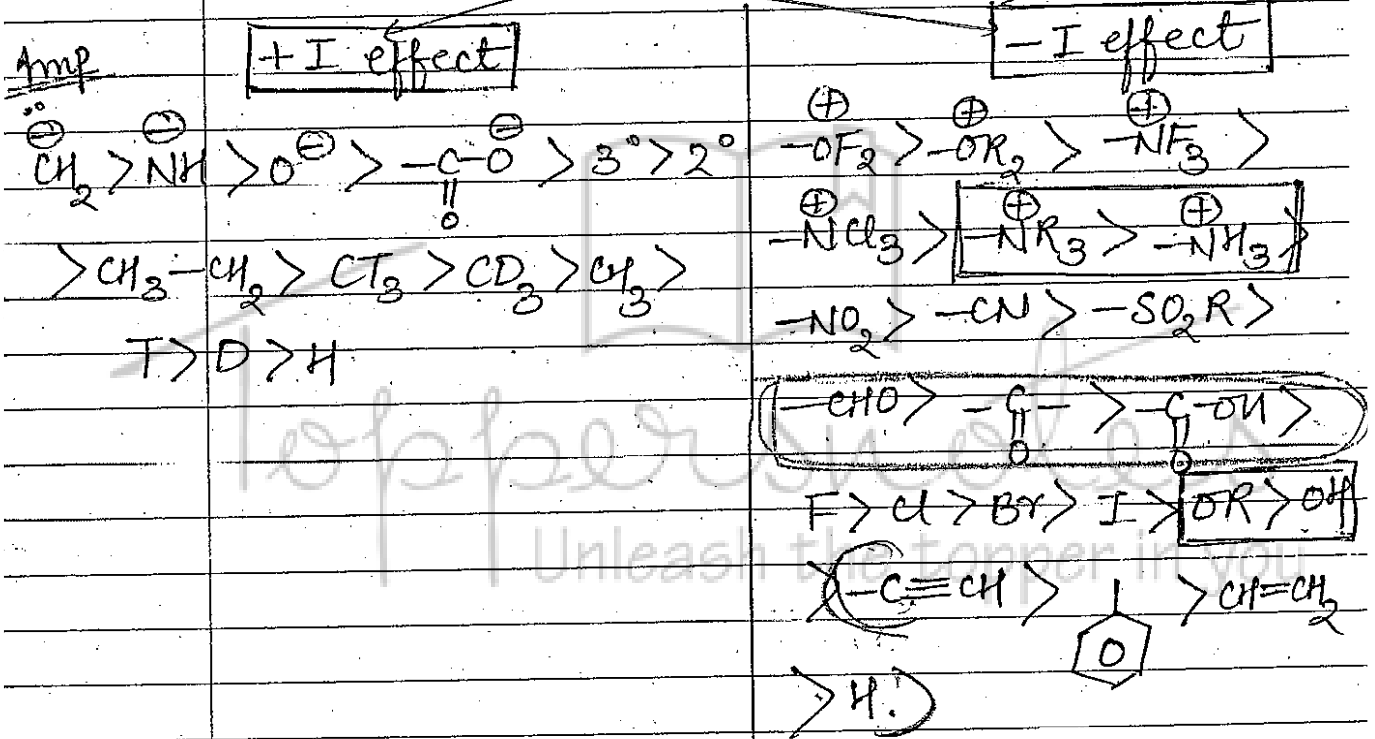 Imp
+I effect
-I effect
⊖CH₂ > ⊖NH > O⊖ > -C(=O)-O⊖ > 3° > 2°
> CH₃-CH₂ > CT₃ > CD₃ > CH₃ >
T > D > H
-⊕OF₂ > -⊕OR₂ > -⊕NF₃ >
-⊕NCl₃ > -⊕NR₃ > -⊕NH₃ >
-NO₂ > -CN > -SO₂R >
-CHO > -C(=O)- > -C(=O)-OH >
F > Cl > Br > I > OR > OH
> -C≡CH > > CH=CH₂
> H.
Toppersnotes
Unleash the topper in you